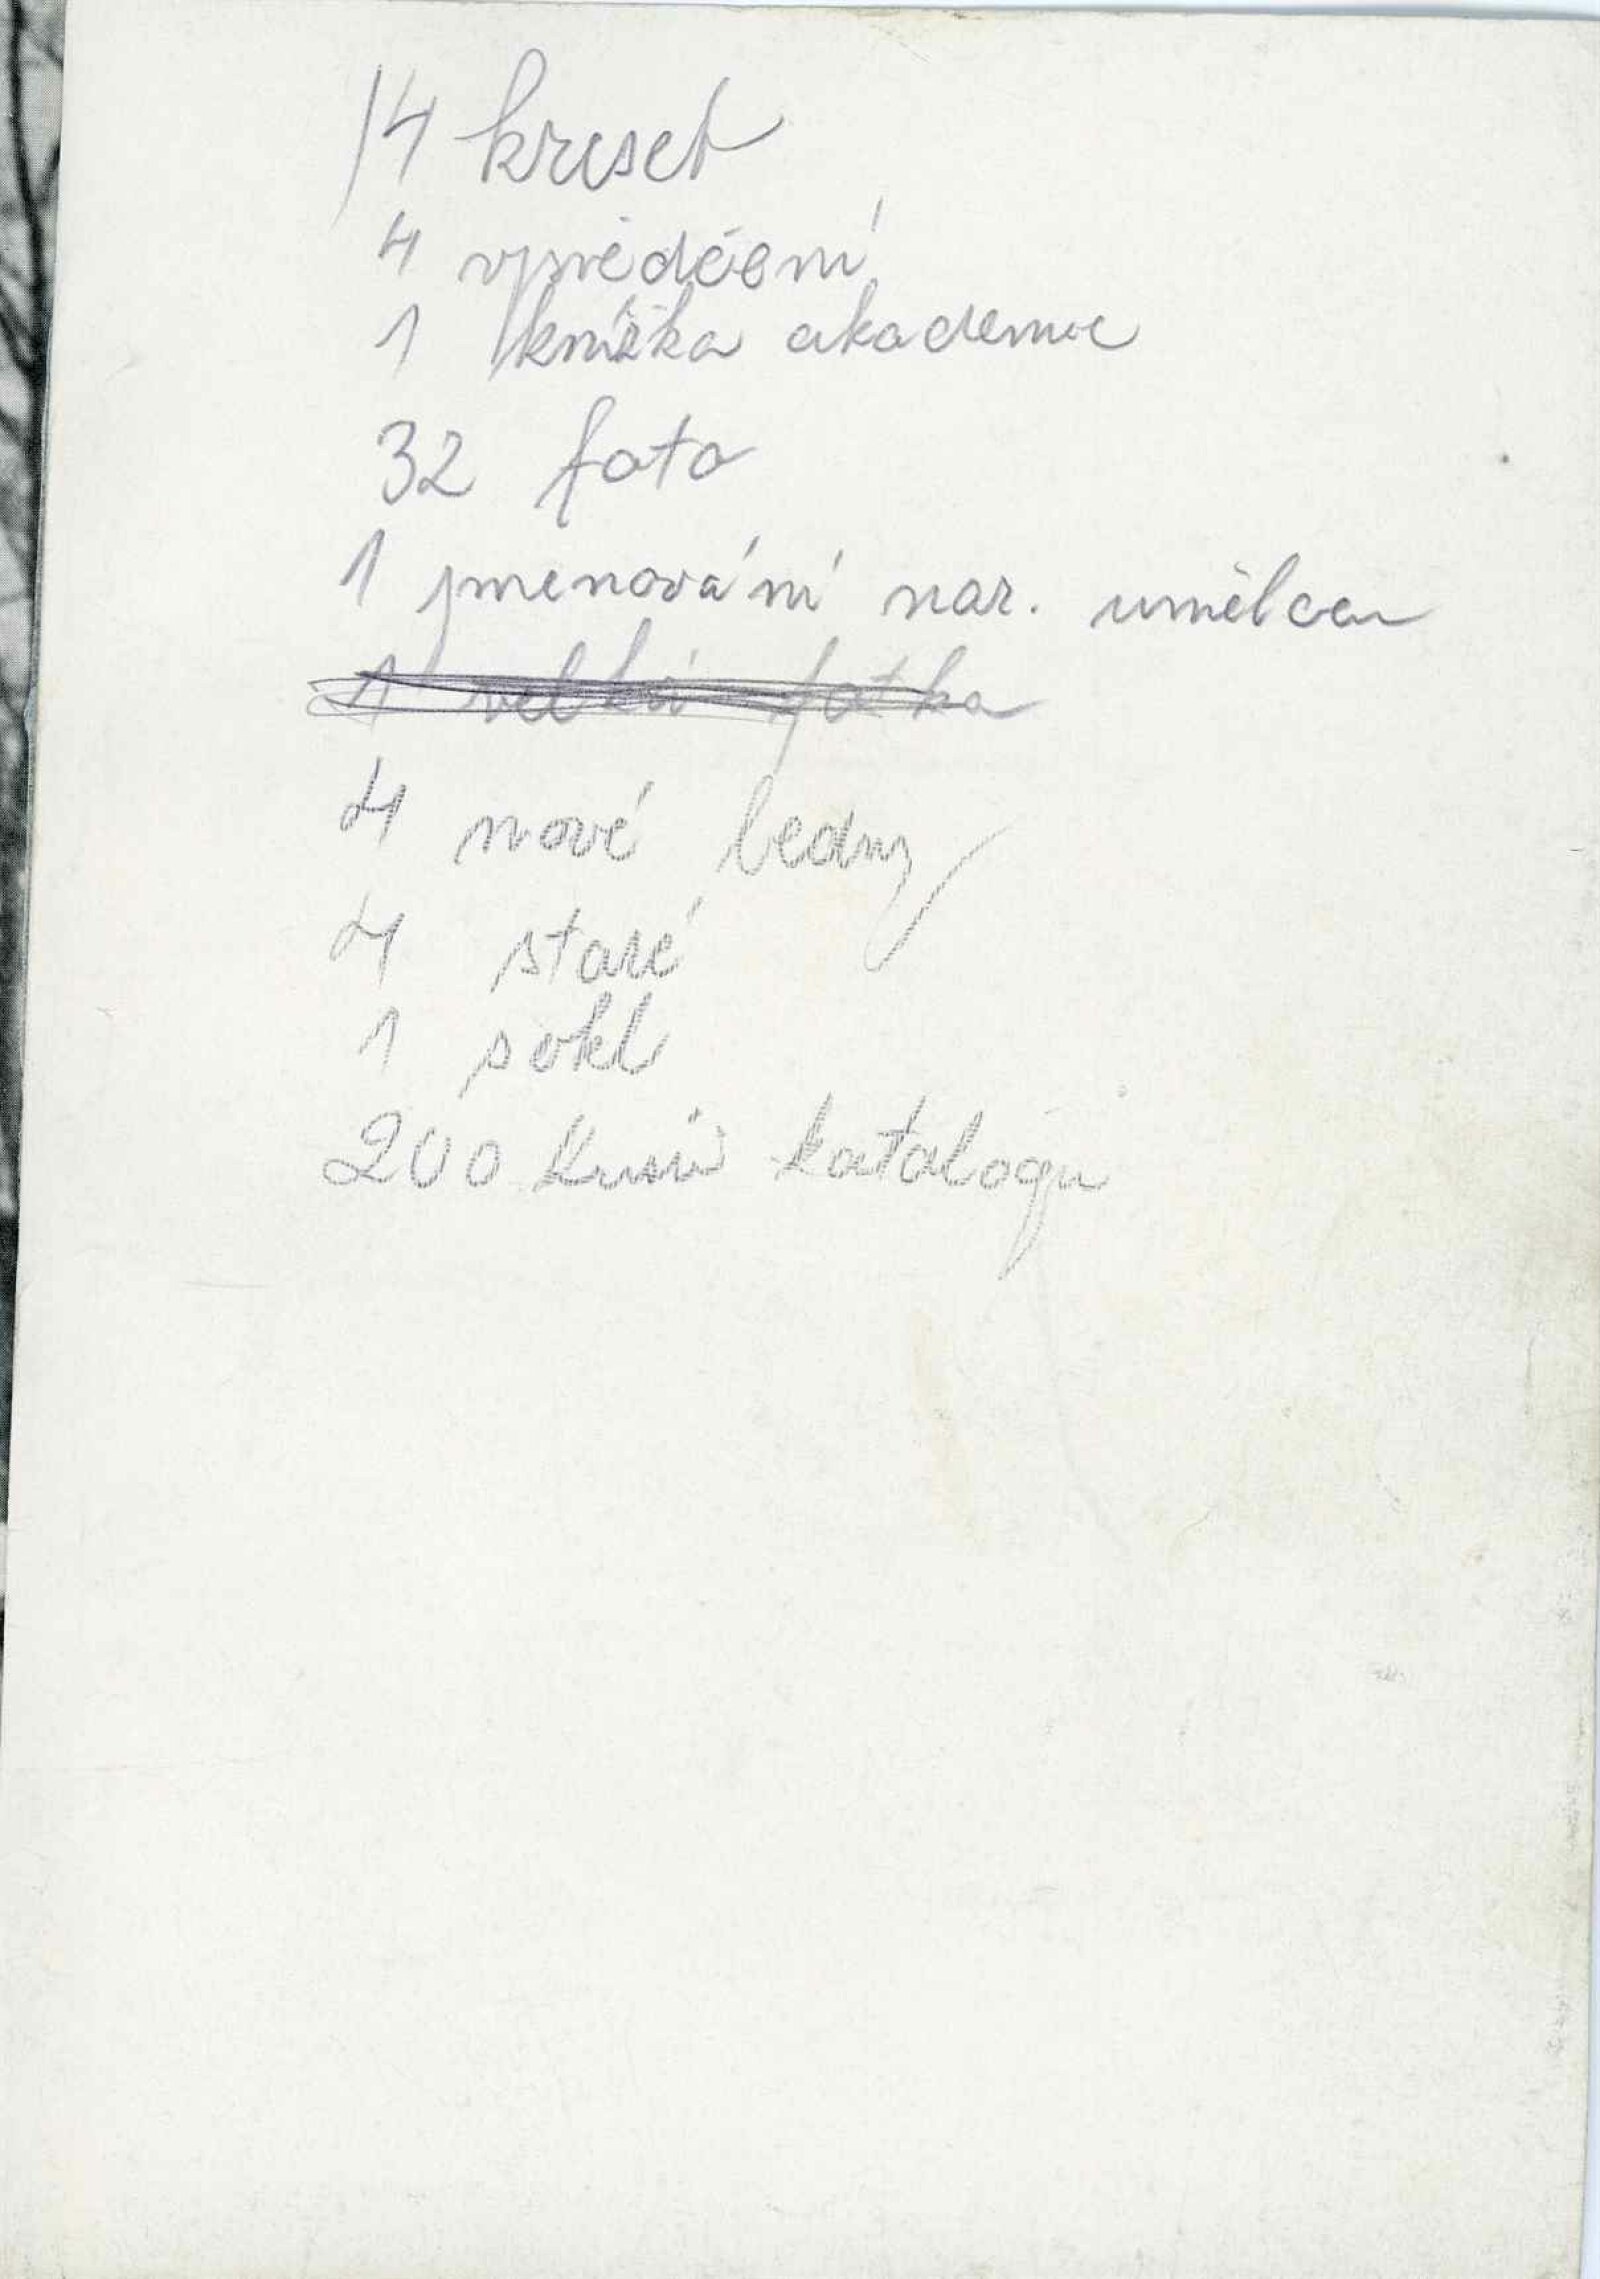 14 kreseb
4 vysvědčení
1 knížka akademie
32 foto
1 jmenování nar. umělcem
1 velká fotka
4 nové bedny
4 staré
1 sokl
200 kusů katalogu